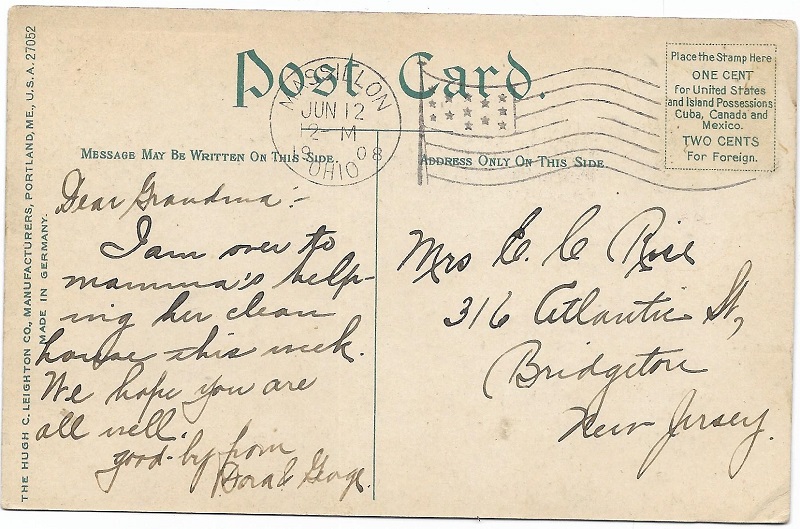 THE HUGH C. LEIGHTON CO., MANUFACTURERS, PORTLAND, ME., U.S.A. 27052
MADE IN GERMANY.
Post Card.
MASSILLON
JUN 12
12- M
1908
OHIO
Place the Stamp Here
ONE CENT
for United States
and Island Possessions
Cuba, Canada and
Mexico.
TWO CENTS
For Foreign.
MESSAGE MAY BE WRITTEN ON THIS SIDE.
ADDRESS ONLY ON THIS SIDE.
Dear Grandma:-
I am over to
mamma's help-
ing her clean
house this week.
We hope you are
all well.
good-by from
Dora & George.
Mrs E. C. Rise
316 Atlantic St,
Bridgeton
New Jersey.